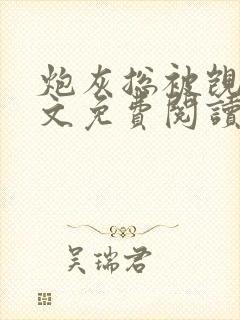 炮灰总被觊
文免费阅读
吴瑞君